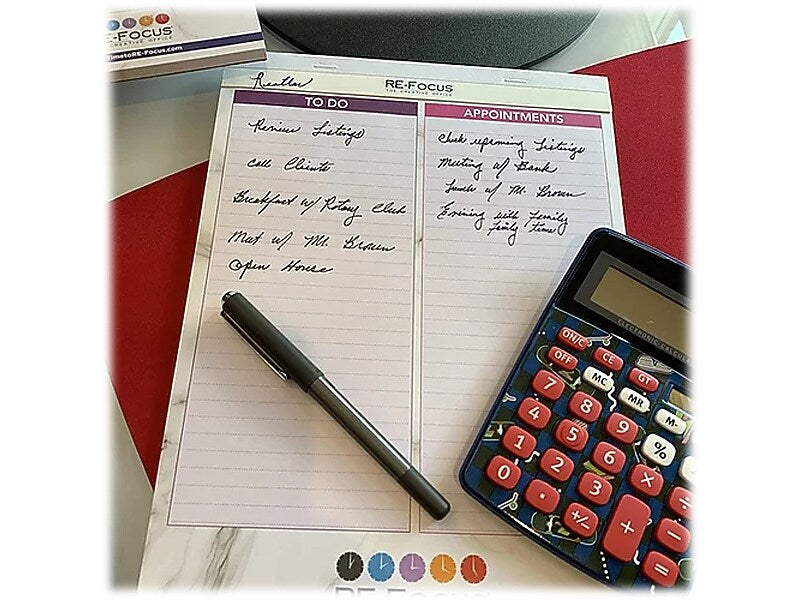 RE-FOCUS
THE CREATIVE OFFICE
TimetoRE-Focus.com
Realtor
RE-FOCUS
THE CREATIVE OFFICE
TO DO
Review Listings
Call Clients
Breakfast w/ Rotary Club
Meet w/ Mr. Brown
Open House
APPOINTMENTS
Check upcoming Listings
Meeting w/ Bank
Lunch w/ Mr. Brown
Evening with family
family time
ELECTRONIC CALCULA
ON/C CE GT
OFF MC MR M-
7 8 9 %
4 5 6 ×
1 2 3 ÷
0 . +/- + −
=
RE-FOCUS